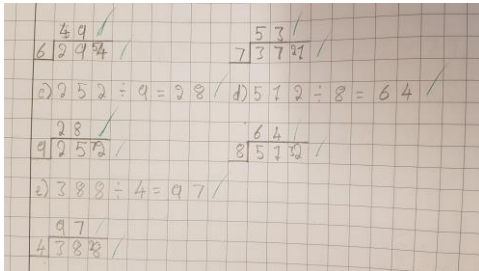 49 53
6 2 9 54 7 3 7 21
c) 252 ÷ 9 = 28 d) 512 ÷ 8 = 64
28 64
9 2 5 72 8 5 1 32
e) 388 ÷ 4 = 97
97
4 3 8 28